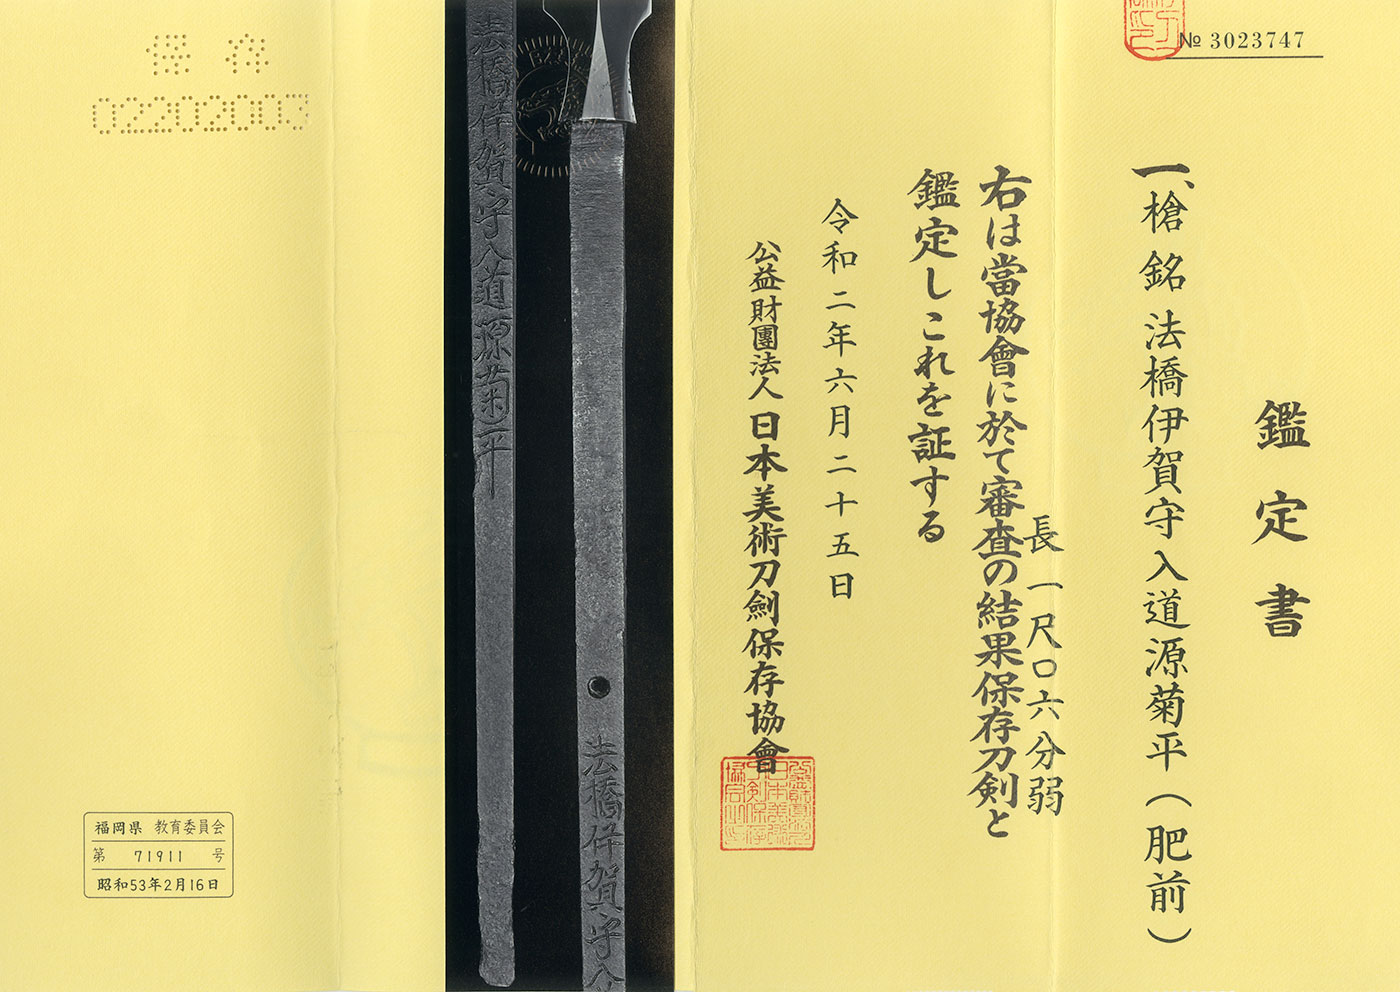 № 3023747
鑑定書
一、槍 銘 法橋伊賀守入道源菊平(肥前)
長一尺〇六分弱
右は當協會に於て審査の結果保存刀剣と
鑑定しこれを証する
令和二年六月二十五日
公益財團法人 日本美術刀劍保存協會
法橋伊賀守入
法橋伊賀守入道源菊平
保存
02202003
福岡県 教育委員会
第 71911 号
昭和53年2月16日